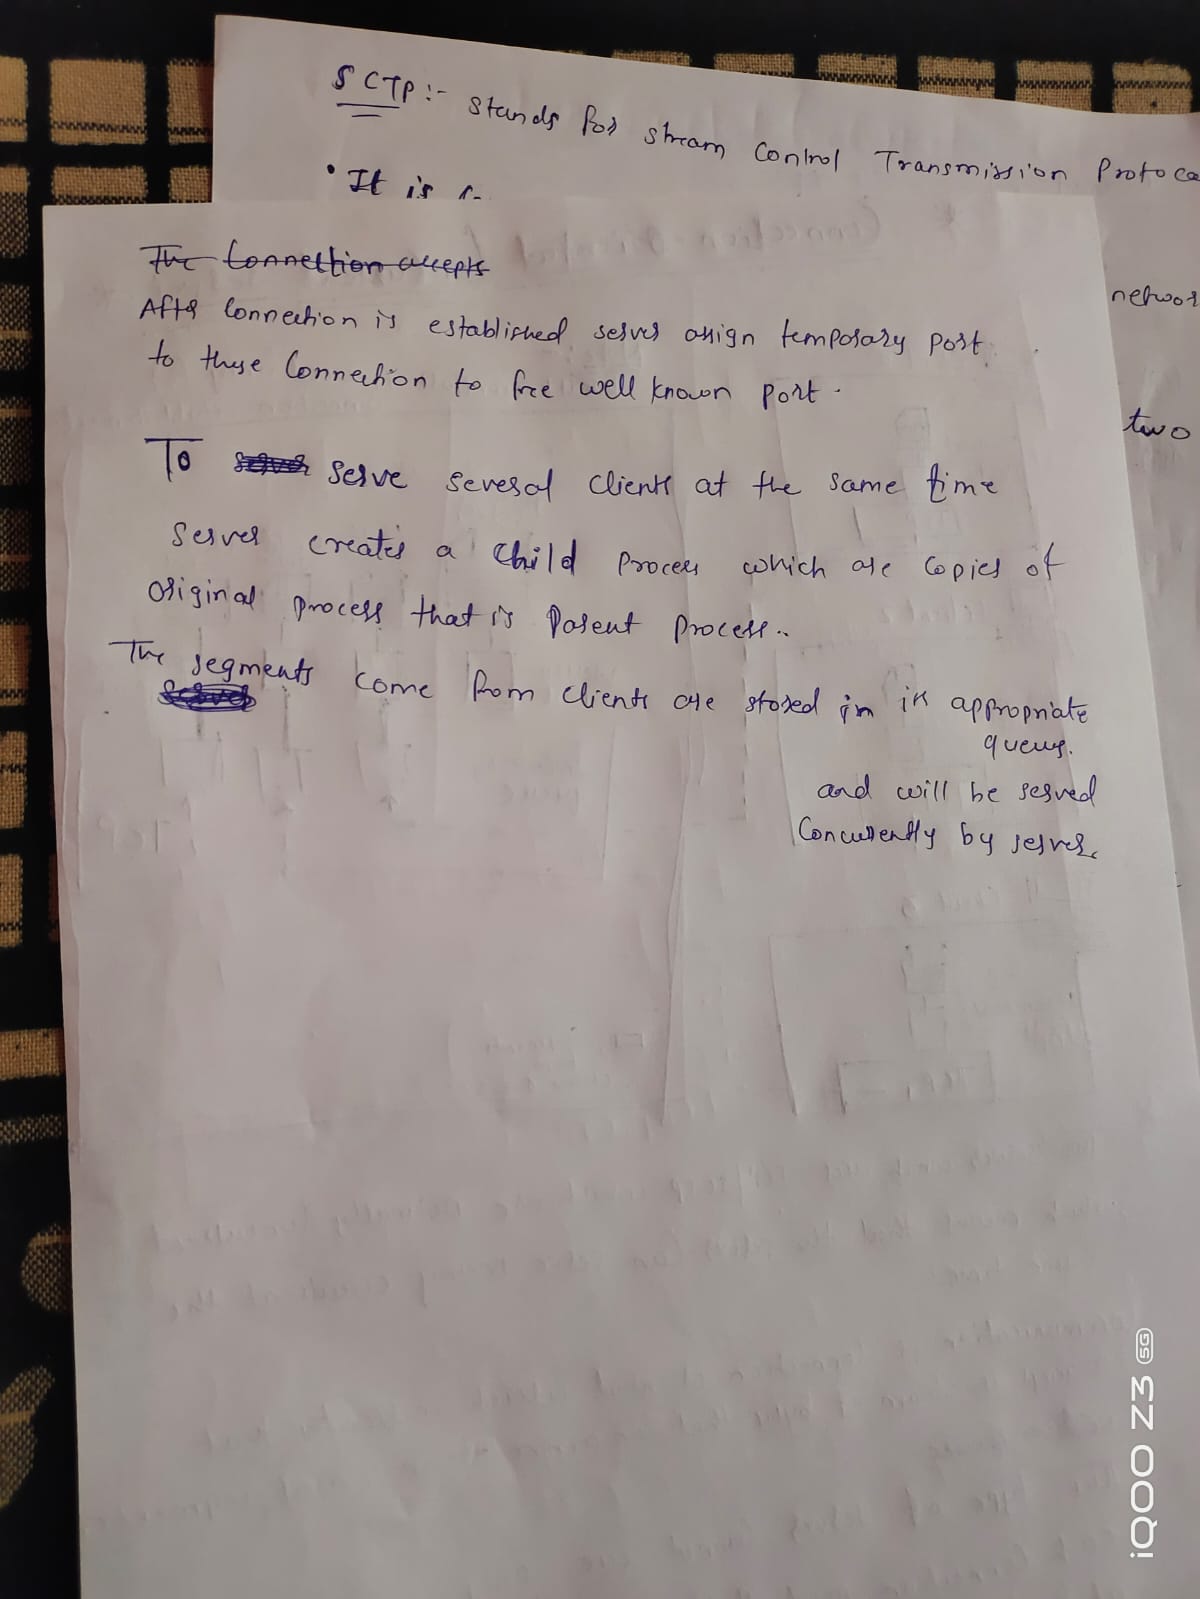 SCTP :- stands for stream Control Transmission Protoco
• It is
networ
two
The Connection accepts
After Connection is established server assign temporary port
to these Connection to free well known port.
To server serve several clients at the same time
Server creates a child process which are copies of
original process that is Parent process..
The segments come from clients are stored in in appropriate
server
queues.
and will be served
Concurrently by server.
iQOO Z3 5G